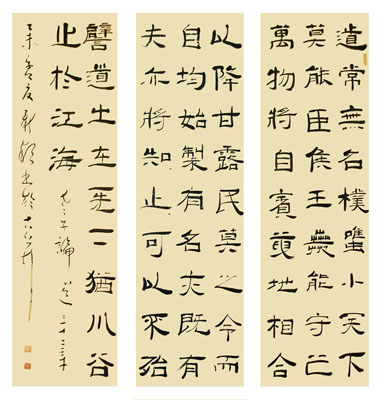 道常無名樸雖小天下
莫能臣侯王若能守之
萬物將自賓天地相合
以降甘露民莫之令而
自均始製有名亦既有
夫亦將知止可以不殆
譬道之在天下猶川谷
之於江海
老子論道三十二章
乙未